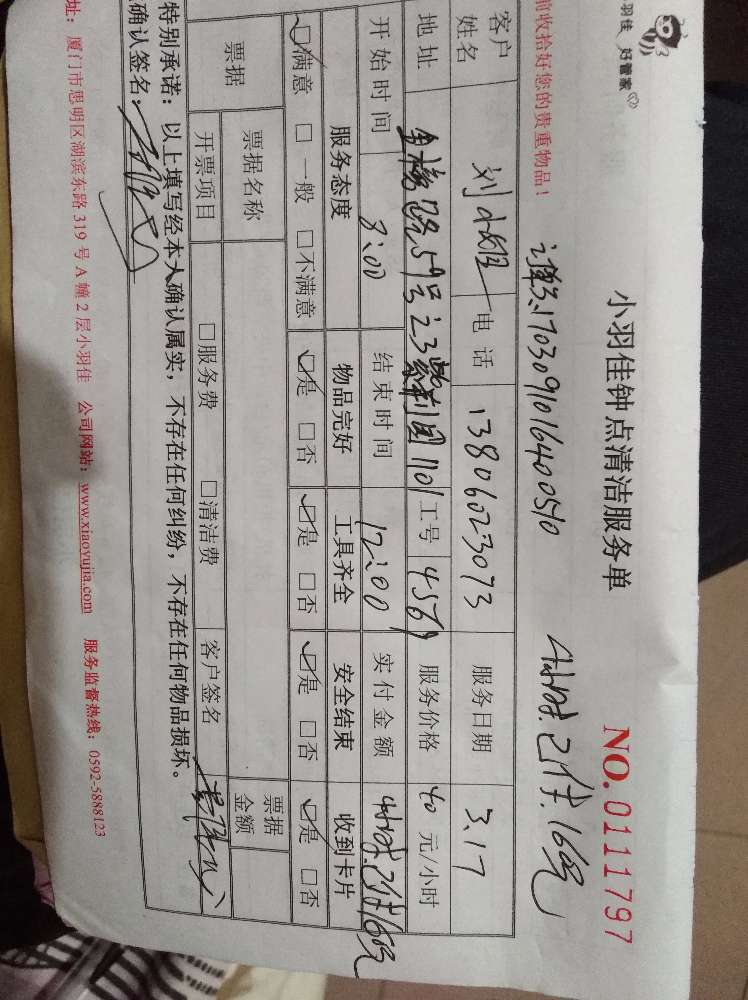 羽佳 好管家
小羽佳钟点清洁服务单
NO. 0111797
前收拾好您的贵重物品！
单3.1703091016400510
4小时.已付.160元
客户姓名 刘小姐 电话 13806023073 服务日期 3.17
地址 金榜路59号之3紫荆园1101 工号 4569 服务价格 40 元/小时
开始时间 8:00 结束时间 12:00 实付金额 4小时.已付160元
服务态度 物品完好 工具齐全 安全结束 收到卡片
☑满意 □一般 □不满意 ☑是 □否 ☑是 □否 ☑是 □否 ☑是 □否
票据 票据名称 票据金额
开票项目 □服务费 □清洁费 客户签名
特别承诺：以上填写经本人确认属实，不存在任何纠纷，不存在任何物品损坏。
确认签名：
址：厦门市思明区湖滨东路 319 号 A 幢 2 层小羽佳 公司网站：www.xiaoyujia.com 服务监督热线：0592-5888123